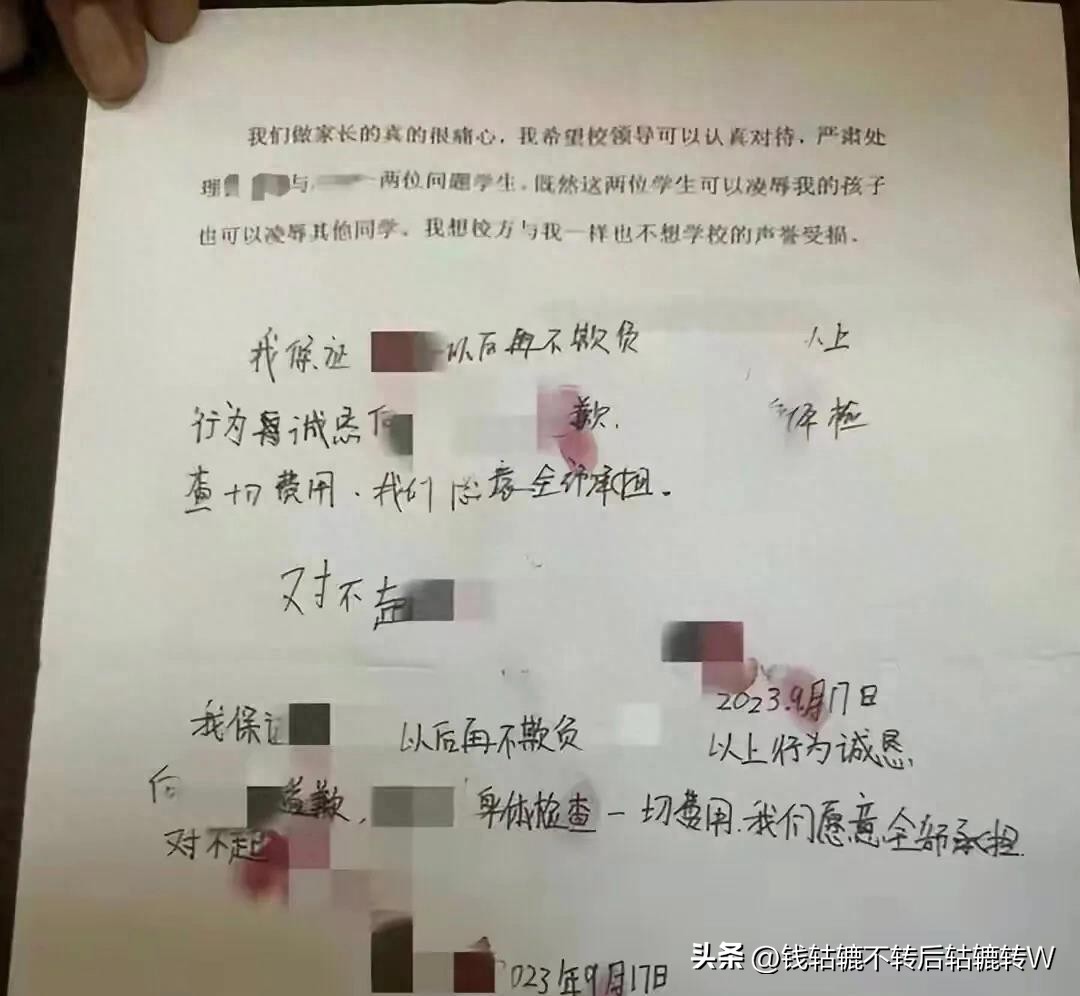 我们做家长的真的很痛心，我希望校领导可以认真对待，严肃处
理 与 两位问题学生。既然这两位学生可以凌辱我的孩子
也可以凌辱其他同学。我想校方与我一样也不想学校的声誉受损。
我保证 以后再不欺负 以上
行为 诚恳向 歉. 体检
查一切费用.我们愿意全部承担。
对不起
2023.9月17日
我保证 以后再不欺负 以上行为诚恳
向 道歉, 身体检查一切费用.我们愿意全部承担.
对不起
023年9月17日
头条 @钱轱辘不转后轱辘转W